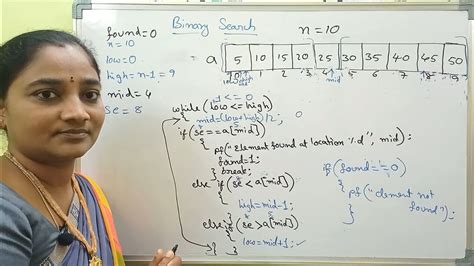 Binary Search
n=10
found=0
n=10
low=0
high=n-1=9
mid=4
se=8
a 5 10 15 20 25 30 35 40 45 50
while(low<=high)
{ mid=(low+high)/2; 0
if(se==a[mid])
{
pf("Element found at location %d", mid);
found=1;
} break;
else if(se<a[mid])
{
high=mid-1;
}
else if(se>a[mid])
{
low=mid+1;
} }
if(found==0)
{
pf("element not
found");
}